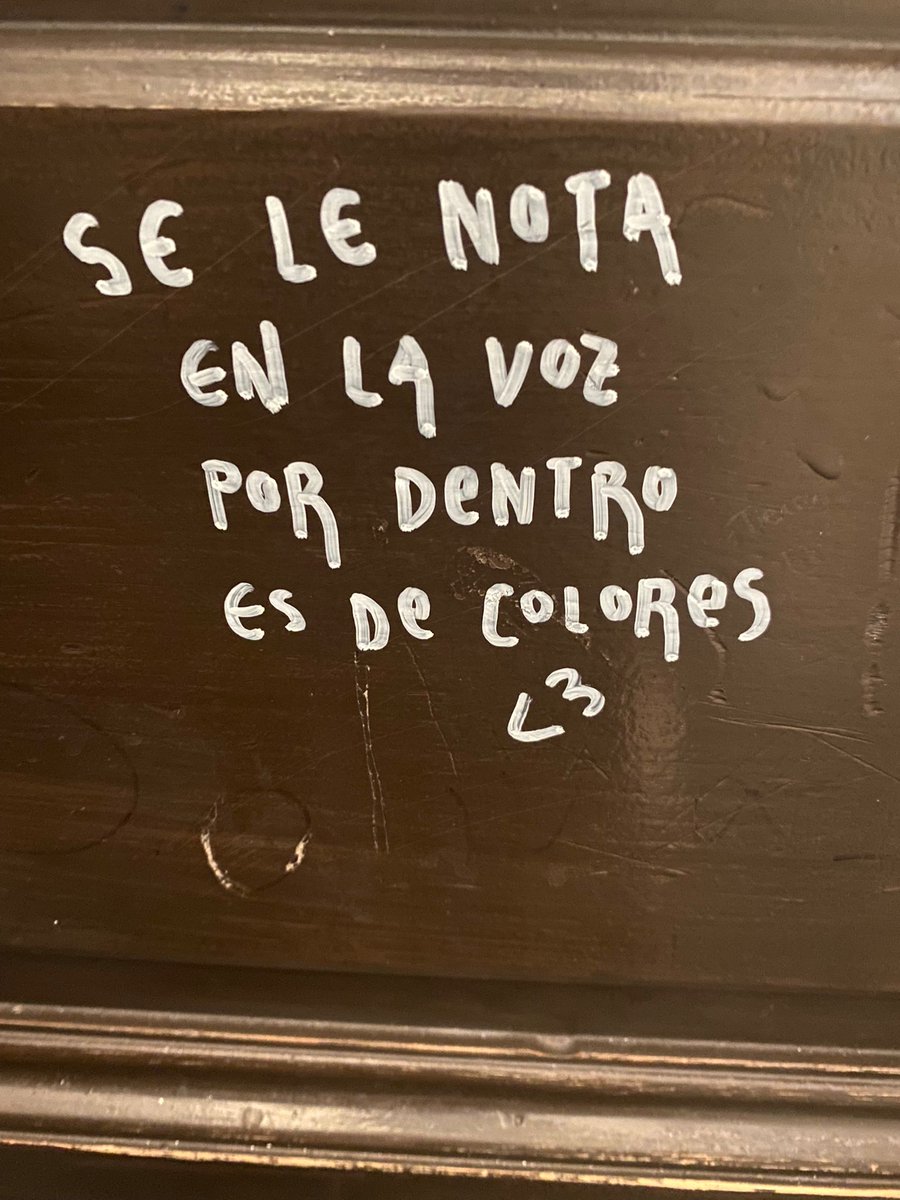 SE LE NOTA
EN LA VOZ
POR DeNTRO
ES De COLOReS
<3